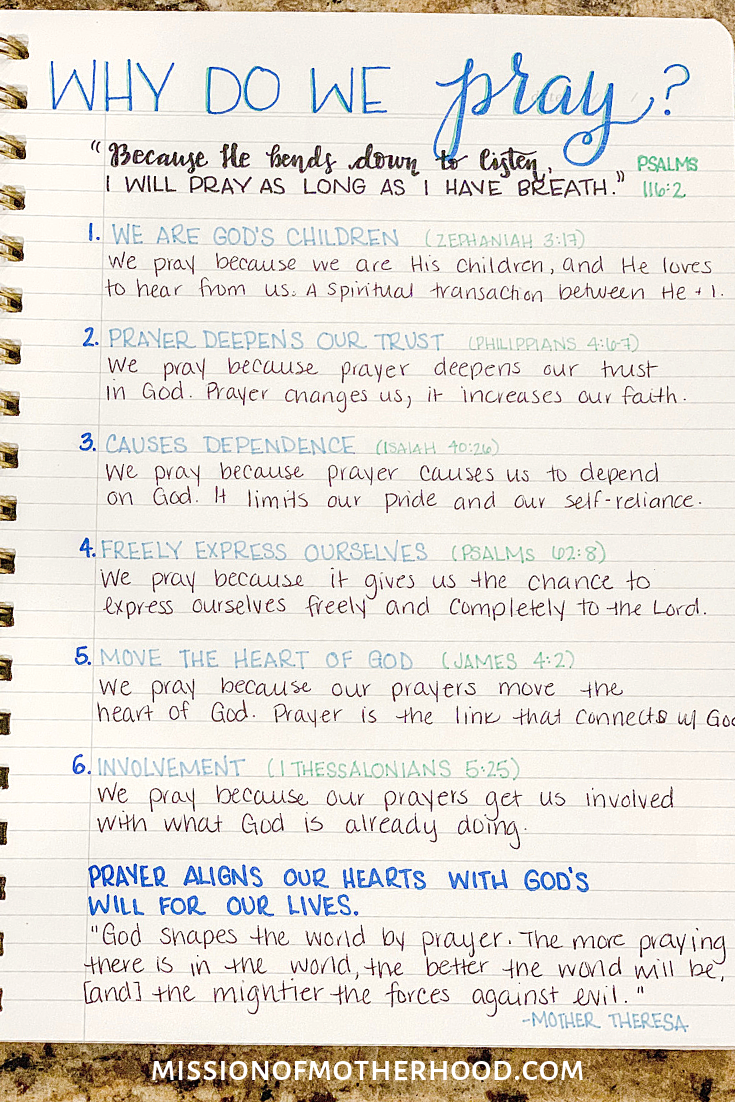 WHY DO WE pray?
"Because He bends down to listen,
I WILL PRAY AS LONG AS I HAVE BREATH." PSALMS 116:2
1. WE ARE GOD'S CHILDREN (ZEPHANIAH 3:17)
We pray because we are His children, and He loves
to hear from us. A spiritual transaction between He + I.
2. PRAYER DEEPENS OUR TRUST (PHILIPPIANS 4:6-7)
We pray because prayer deepens our trust
in God. Prayer changes us, it increases our faith.
3. CAUSES DEPENDENCE (ISAIAH 40:26)
We pray because prayer causes us to depend
on God. It limits our pride and our self-reliance.
4. FREELY EXPRESS OURSELVES (PSALMS 62:8)
We pray because it gives us the chance to
express ourselves freely and completely to the Lord.
5. MOVE THE HEART OF GOD (JAMES 4:2)
We pray because our prayers move the
heart of God. Prayer is the link that connects w/ Go
6. INVOLVEMENT (1 THESSALONIANS 5:25)
We pray because our prayers get us involved
with what God is already doing.
PRAYER ALIGNS OUR HEARTS WITH GOD'S
WILL FOR OUR LIVES.
"God shapes the world by prayer. The more praying
there is in the world, the better the world will be,
[and] the mightier the forces against evil."
-MOTHER THERESA
MISSIONOFMOTHERHOOD.COM